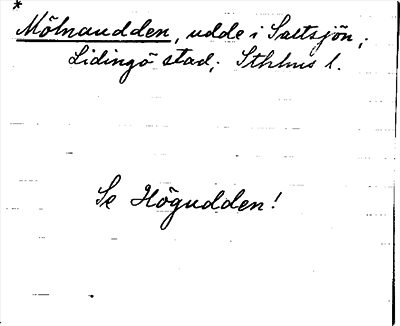 *
Mölnaudden, udde i Saltsjön,
Lidingö stad; Sthlms l.
Se Högudden!